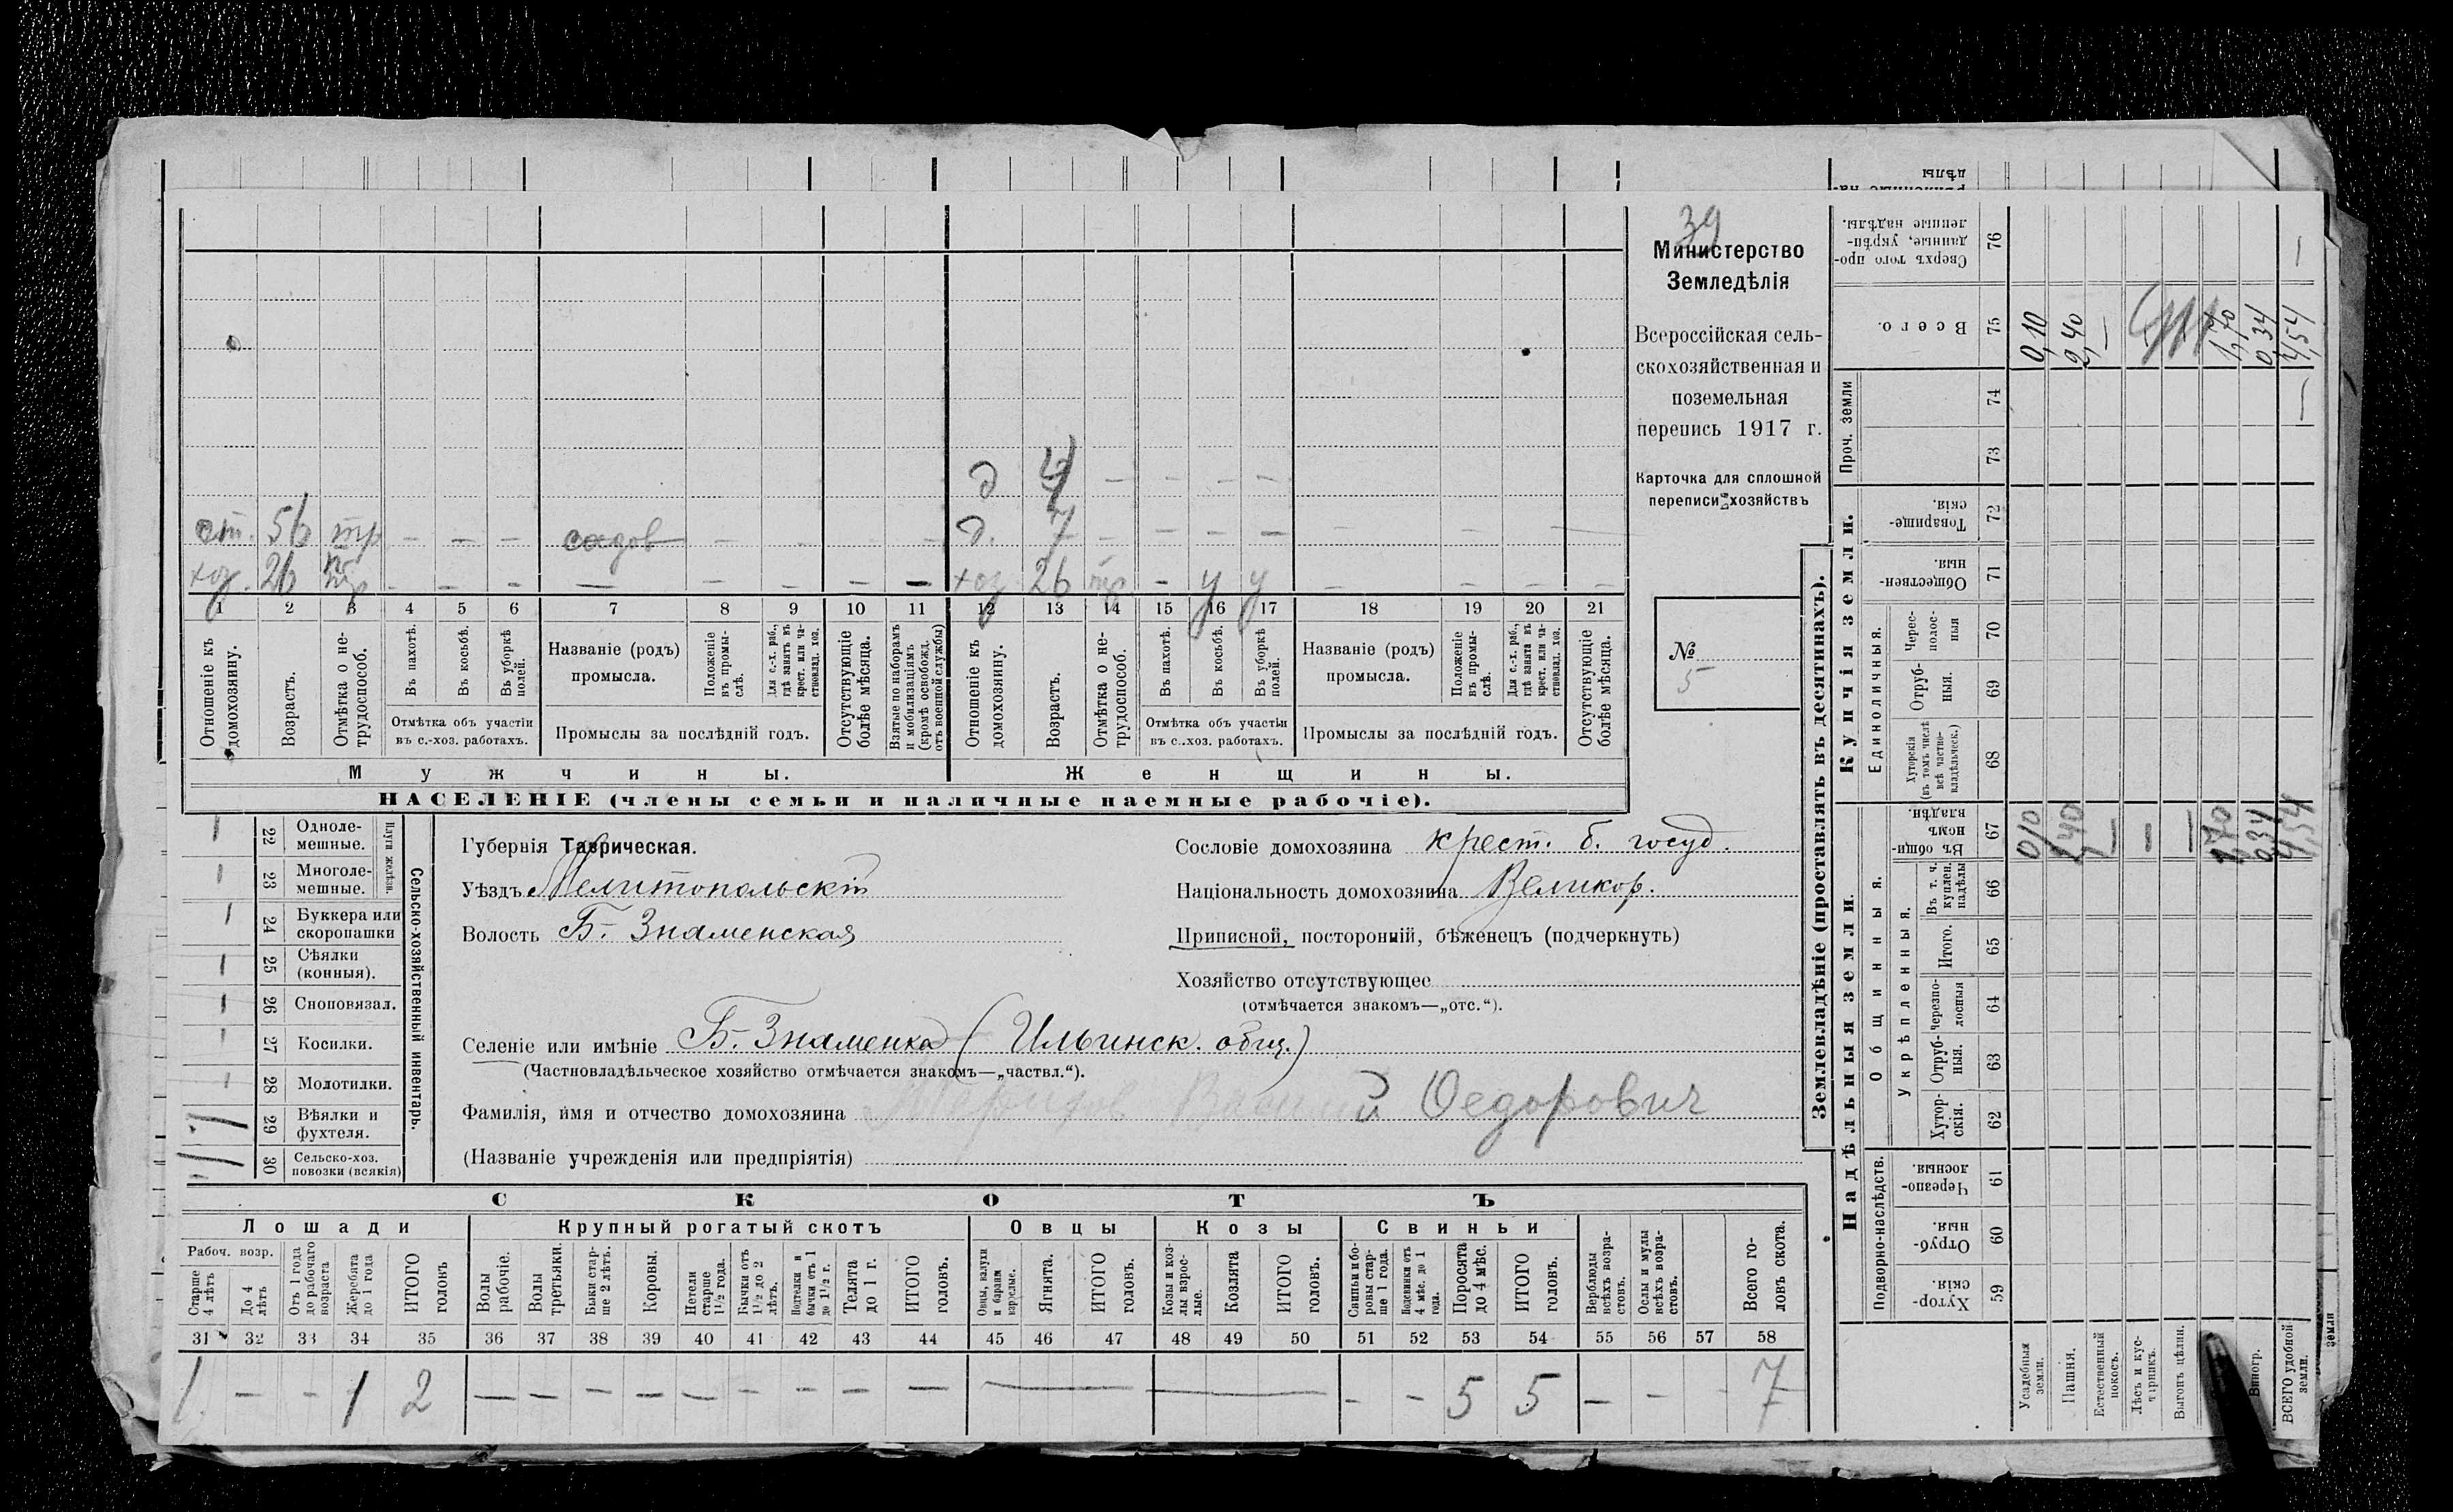 39
Министерство
Земледѣлія
Всероссійская сель-
скохозяйственная и
поземельная
перепись 1917 г.
Карточка для сплошной
переписи хозяйствъ
№
5
д 4 – – – –
от. 56 тр – – – садов – – – – д. 7 – – – – – – –
хоз. 26 – – – – – – – – хоз 26 – у у – – – –
1 2 3 4 5 6 7 8 9 10 11 12 13 14 15 16 17 18 19 20 21
Отношеніе къ домохозяину.
Возрастъ.
Отмѣтка о не-трудоспособ.
Въ пахотѣ.
Въ косьбѣ.
Въ уборкѣ полей.
Отмѣтка объ участіи
въ с.-хоз. работахъ.
Названіе (родъ)
промысла.
Положеніе въ промы-слѣ.
Для с.-х. раб., гдѣ занятъ въ крест. или ча-стновлад. хоз.
Промыслы за послѣдній годъ.
Отсутствующіе болѣе мѣсяца.
Взятые по наборамъ и мобилизаціямъ (кромѣ освобожд. отъ военной службы)
Отношеніе къ домохозяину.
Возрастъ.
Отмѣтка о не-трудоспособ.
Въ пахотѣ.
Въ косьбѣ.
Въ уборкѣ полей.
Отмѣтка объ участіи
въ с..хоз. работахъ.
Названіе (родъ)
промысла.
Положеніе въ промы-слѣ.
Для с.-х. раб., гдѣ занята въ крест. или ча-стновлад. хоз.
Промыслы за послѣдній годъ.
Отсутствующіе болѣе мѣсяца.
Мужчины.
Женщины.
НАСЕЛЕНІЕ (члены семьи и наличные наемные рабочіе).
Сельско-хозяйственный инвентарь.
Плуги желѣзн.
22 Одноле-мешные.
23 Многоле-мешные.
24 Буккера или скоропашки
25 Сѣялки (конныя).
26 Сноповязал.
27 Косилки.
28 Молотилки.
29 Вѣялки и фухтеля.
30 Сельско-хоз. повозки (всякія)
Губернія Таврическая.
Уѣздъ Мелитопольскій
Волость Б. Знаменская
Сословіе домохозяина крест. б. госуд.
Національность домохозяина Великор.
Приписной, посторонній, бѣженецъ (подчеркнуть)
Хозяйство отсутствующее
(отмѣчается знакомъ—„отс.“).
Селеніе или имѣніе Б. Знаменка (Ильинск. общ.)
(Частновладѣльческое хозяйство отмѣчается знакомъ—„частвл.“).
Фамилія, имя и отчество домохозяина Федорович
(Названіе учрежденія или предпріятія)
СКОТЪ
Лошади
Крупный рогатый скотъ
Овцы
Козы
Свиньи
Рабоч. возр.
Старше 4 лѣтъ
До 4 лѣтъ
Отъ 1 года до рабочаго возраста
Жеребята до 1 года
ИТОГО головъ
Волы рабочіе.
Волы третьяки.
Быки стар-ше 2 лѣтъ.
Коровы.
Нетели старше 1½ года.
Бычки отъ 1½ до 2 лѣтъ.
Подтелки и бычки отъ 1 до 1½ г.
Телята до 1 г.
ИТОГО головъ.
Овцы, валухи и бараны взрослые.
Ягнята.
ИТОГО головъ.
Козы и коз-лы взрос-лые.
Козлята
ИТОГО головъ.
Свиньи и бо-ровы стар-ше 1 года.
Подсвинки отъ 4 мѣс. до 1 года.
Поросята до 4 мѣс.
ИТОГО головъ.
Верблюды всѣхъ возра-стовъ.
Ослы и мулы всѣхъ возра-стовъ.
Всего го-ловъ скота.
31 32 33 34 35 36 37 38 39 40 41 42 43 44 45 46 47 48 49 50 51 52 53 54 55 56 57 58
1 – – 1 2 – – – – – – – – – – – – – 5 5 – – – 7
Землевладѣніе (проставлять въ десятинахъ).
Надѣльныя земли.
Купчія земли.
Проч. земли
Подворно-наслѣдств.
Общинныя.
Укрѣпленныя.
Единоличныя.
59 Хутор-скія.
60 Отруб-ныя.
61 Черезпо-лосныя.
62 Хутор-скія.
63 Отруб-ныя.
64 Черезпо-лосныя
65 Итого.
66 Въ т. ч. куплен. надѣлы
67 Въ общин-номъ владѣн.
68 Хуторскія (въ томъ числѣ всѣ частно-владѣльческ.)
69 Отруб-ныя.
70 Черес-полос-ныя
71 Обществен-ныя.
72 Товарище-скія.
73
74
75 Всего.
76 Сверхъ того про-данные, укрѣп-ленные надѣлы.
Усадебныя земли. 0,10 0,10
Пашня. 2,40 2,40
Естественный покосъ. – –
Лѣсъ и кус-тарникъ. –
Выгонъ цѣлин. –
1,70 1,70
Виногр. 0,34 0,34
ВСЕГО удобной земли. 4,54 – 4,54 –
дѣлы
земли